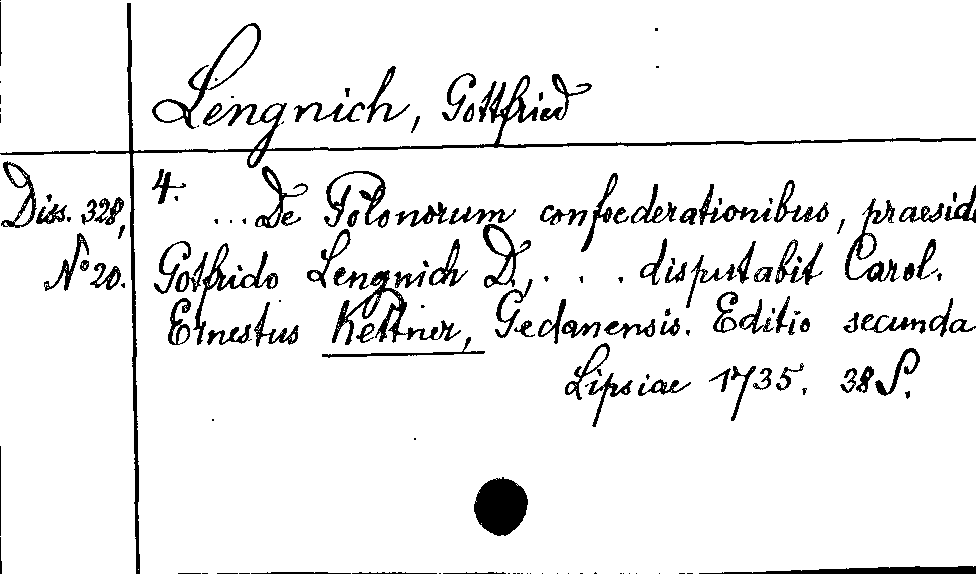 Lengnich, Gottfried
Diss. 328,
No 20.
4.
...De Polonorum confoederationibus, praeside
Gotfrido Lengnich D., . . . disputabit Carol.
Ernestus Kettner, Gedanensis. Editio secunda
Lipsiae 1735. 38 S.